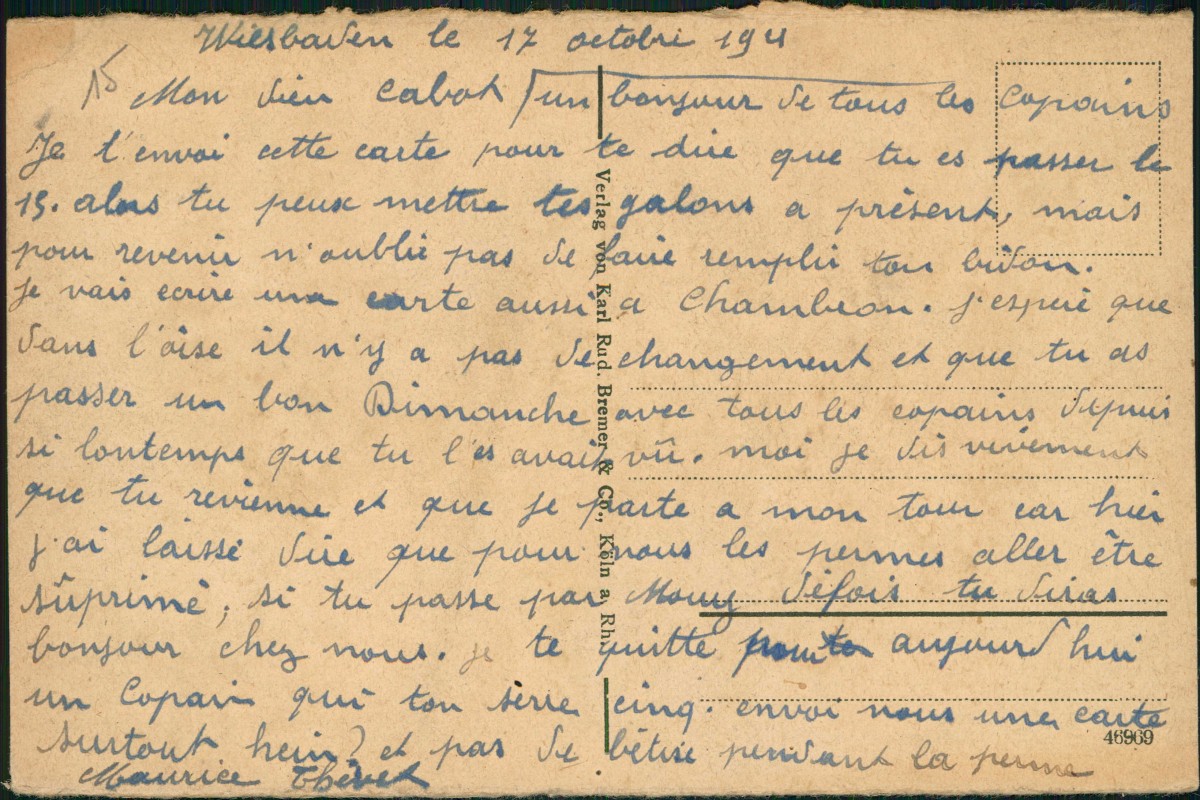 Wiesbaden le 17 octobri 1921
15
Mon vieu Cabot / un bonjour de tous les Copains
Je t'envoi cette carte pour te dire que tu es passer le
15. alors tu peux mettre tes galons a présent, mais
pour revenir n'oublie pas de faire remplir ton bidon.
Je vais ecrire une carte aussi a Chambeon. J'espere que
dans l'oise il n'y a pas de changement et que tu as
passer un bon Dimanche avec tous les copains depuis
si lontemps que tu l'es avait vû. moi je dis vivement
que tu revienne et que je parte a mon tour car hier
j'ai laissé dire que pour nous les permes aller être
sûprimé, si tu passe par Mouy défois tu diras
bonjour chez nous. je te quitte pour aujourd hui
un Copain qui ton serre cinq. envoi nous une carte
surtout hein? et pas de bêtise pendant la perme
Maurice Thévet
Verlag von Karl Rud. Bremer & Co., Köln a. Rh.
46969